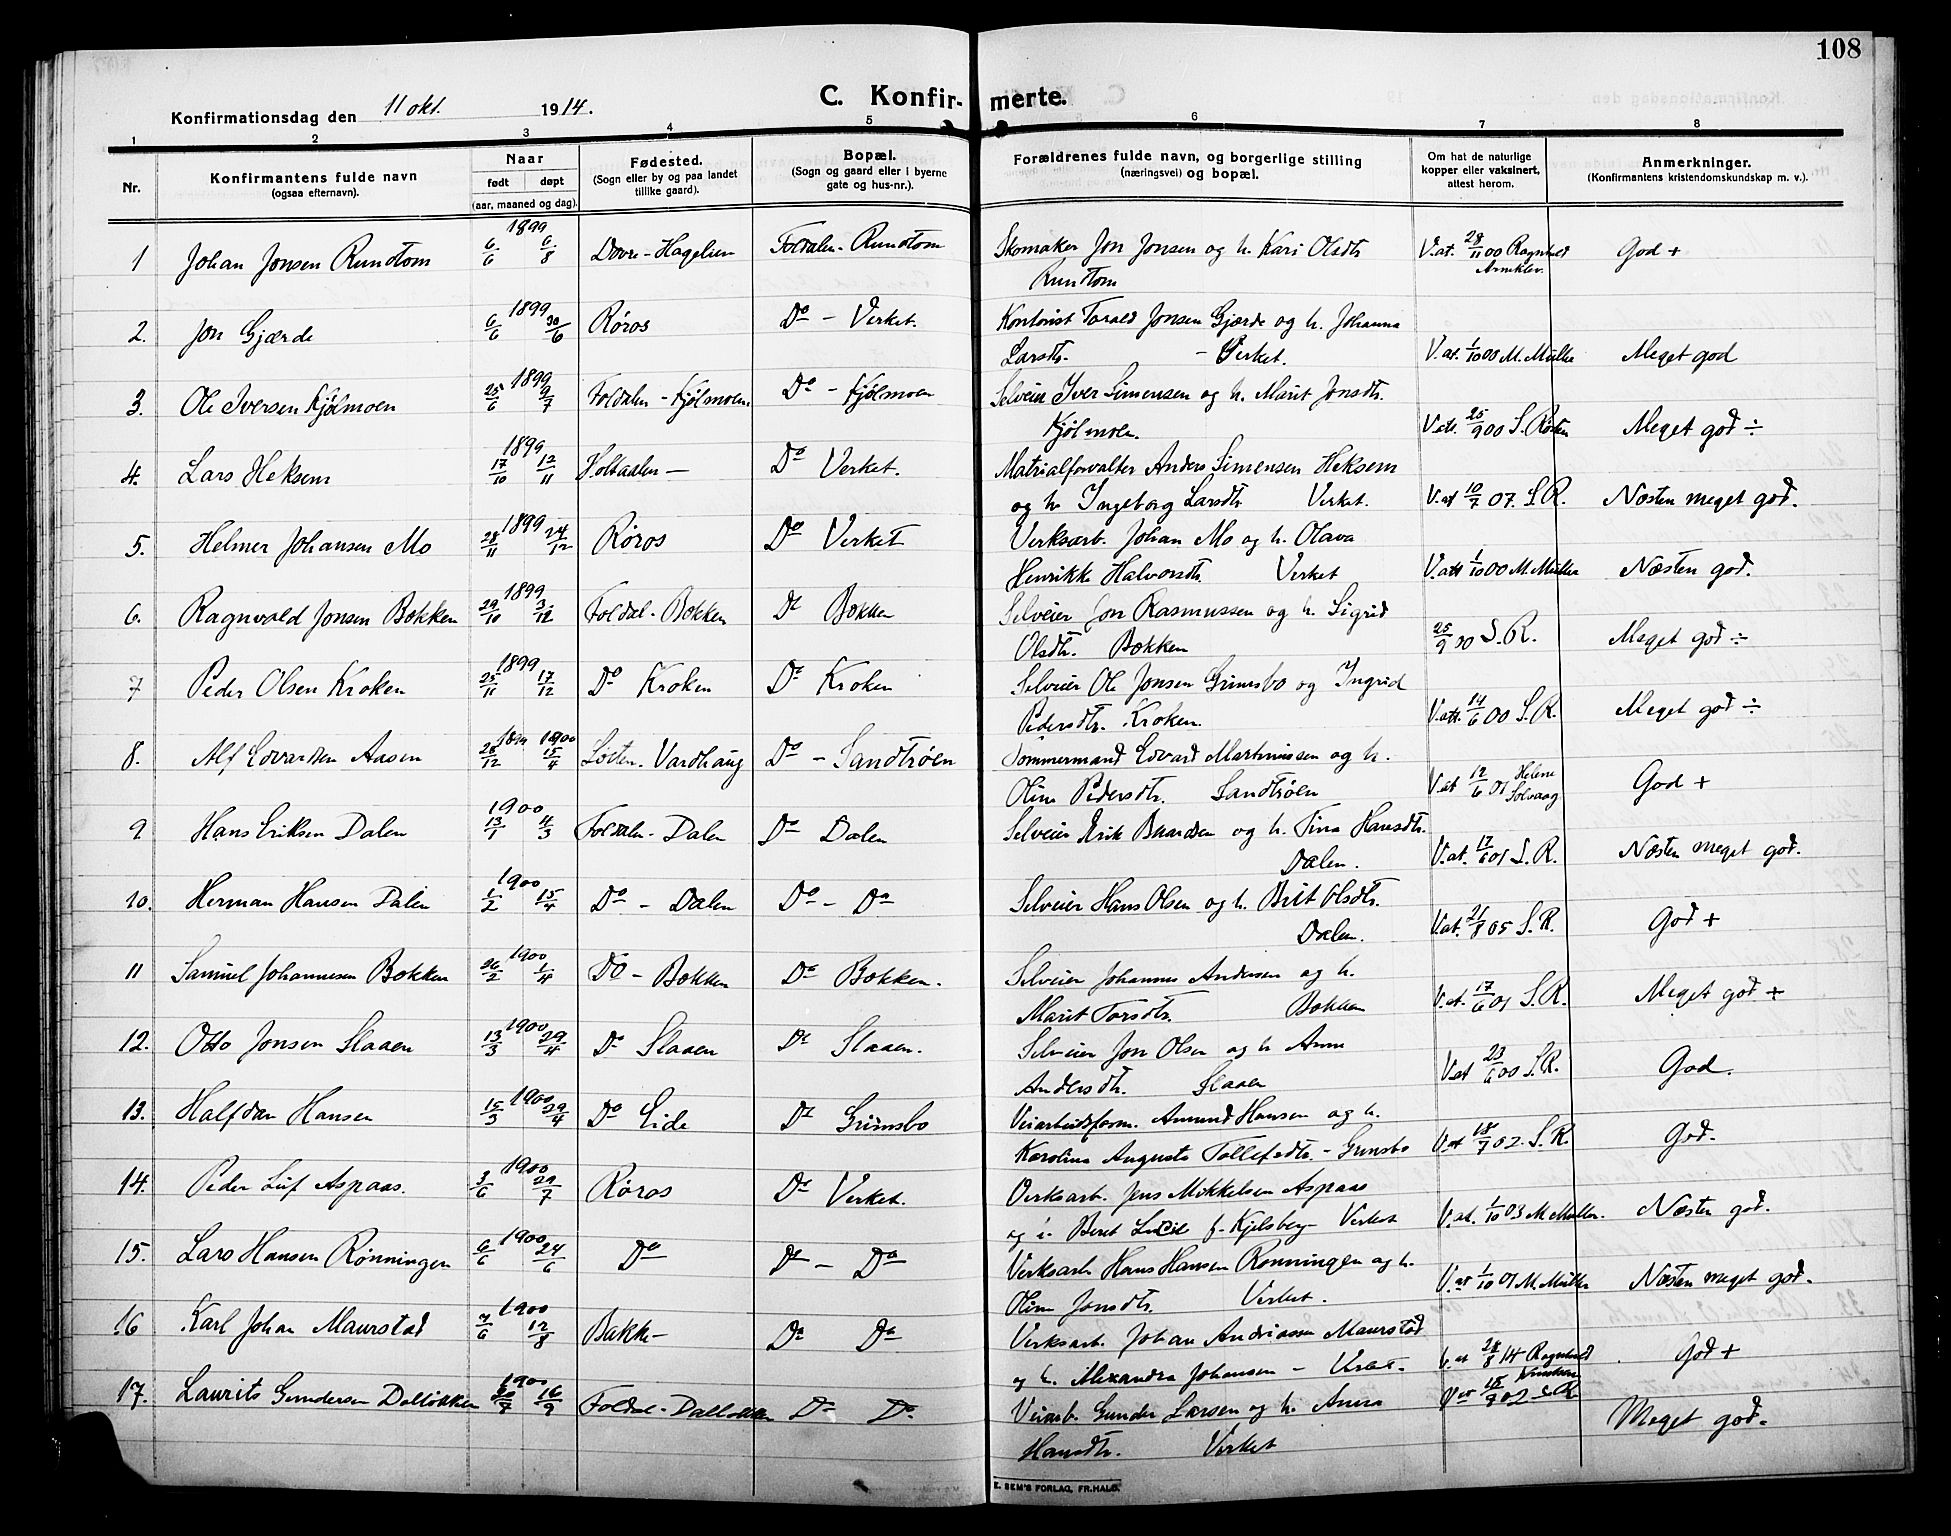 108
C. Konfir- merte.
Konfirmationsdag den 11 okt. 1914.
1 2 3 4 5 6 7 8
Nr.
Konfirmantens fulde navn
(ogsaa efternavn).
Naar
født døpt
(aar, maaned og dag).
Fødested.
(Sogn eller by og paa landet
tillike gaard).
Bopæl.
(Sogn og gaard eller i byerne
gate og hus-nr.).
Forældrenes fulde navn, og borgerlige stilling
(næringsvei) og bopæl.
Om hat de naturlige
kopper eller vaksinert,
attest herom.
Anmerkninger.
(Konfirmantens kristendomskundskap m. v.).
1 Johan Jonsen Rundtom 6/6 1899 6/8 Dovre - Hagelien Foldalen - Rundtom Skomaker Jon Jonsen og h. Kari Olsdtr V.at. 28/11 00 Ragnhild God +
Rundtom
2. Jon Gjærde 6/6 1899 30/6 Røros Do - Verket. Kontorist Torald Jonsen Gjærde og h. Johanna
Larsdtr. - Verket. V.at. 1/10 00 M. Müller Meget god
3. Ole Iversen Kjølmoen 25/6 1899 9/7 Foldalen - Kjølmoen. Do - Kjølmoen Selveier Iver Simensen og h. Marit Jonsdtr.
Kjølmoen. V.att. 25/9 00 S. Røsten Meget god ÷
4. Lars Heksem 17/10 1899 12/11 Holtaalen - Do Verket. Matrialforvalter Anders Simensen Heksem
og h. Ingeborg Larsdtr Verket. V.at 10/7 07. S. R. Næsten meget god.
5. Helmer Johansen Mo 28/11 1899 24/12 Røros Do Verket Verksarb. Johan Mo og h. Olava
Henrikke Halvorsdtr. Verket V.att 1/10 00 M. Müller Næsten god.
6. Ragnvald Jonsen Bakken 29/10 1899 3/12 Foldal - Bakken Do Bakken Selveier Jon Rasmussen og h. Sigrid
Olsdtr. Bakken 25/9 00 S. R. Meget god ÷
7 Peder Olsen Kroken 25/11 1899 17/12 Do Kroken Do Kroken Selveier Ole Jonsen Grimsbo og Ingrid
Pedersdtr. Kroken. V.att. 14/6 00 S. R. Meget god ÷
8. Alf Edvardsen Aasen 28/12 1899 1900 15/4 Løiten - Vardhaug Do - Sandtrøen Tømmermand Edvard Martinussen og h.
Oline Pedersdtr. Sandtrøen V.at 12/6 01 Helene Solvaag God +
9 Hans Eriksen Dalen 13/1 1900 11/3 Foldalen - Dalen Do Dalen Selveier Erik Baardsen og h. Tina Hansdtr.
Dalen. V.at. 17/6 01 S. R. Næsten meget god.
10. Herman Hansen Dalen 1/2 1900 15/4 Do - Dalen Do - Do Selveier Hans Olsen og h. Brit Olsdtr.
Dalen. V.at. 26/8 05 S. R. God +
11 Samuel Johannesen Bakken 26/2 1900 1/4 Do - Bakken Do Bakken. Selveier Johannes Andersen og h.
Marit Torsdtr. Bakken V.at. 17/6 01 S. R. Meget god +
12. Otto Jonsen Slaaen 13/3 1900 29/4 Do Slaaen Do Slaaen. Selveier Jon Olsen og h Anne
Andersdtr. Slaaen V.at 23/6 00 S. R. God.
13. Halfdan Hansen 15/3 1900 29/4 Do Eide Do Grimsbo Veiarbeidsform. Amund Hansen og h.
Karolina Augusta Tollefsdtr. - Grimsbo V.at 18/7 02. S. R. God.
14. Peder Leif Aspaas. 3/6 1900 29/7 Røros Do Verket. Verksarb. Jens Mikkelsen Aspaas
og h. Beret f. Kjelsberg Verket V.at. 1/10 03 M Müller. Næsten god.
15. Lars Hansen Rønningen 6/6 1900 24/6 Do Do - Do Verksarb Hans Hansen Rønningen og h.
Oline Jonsdtr. Verket. V.at 1/10 01 M. Müller Næsten meget god.
16 Karl Johan Maurstad 7/6 1900 12/8 Bakke - Do Do Verksarb. Johan Andriassen Maurstad
og h. Alexandra Johansen - Verket. V.at 28/8 14 Ragnhild God +
17. Laurits Gundersen Dalløkken 20/7 1900 16/9 Foldal - Dalløkken Do Do. Veiarb. Gunder Larsen og h. Anna 15/9 02 S R
Hansdtr. Verket Meget god.
E. SEM'S FORLAG, FR.HALD.